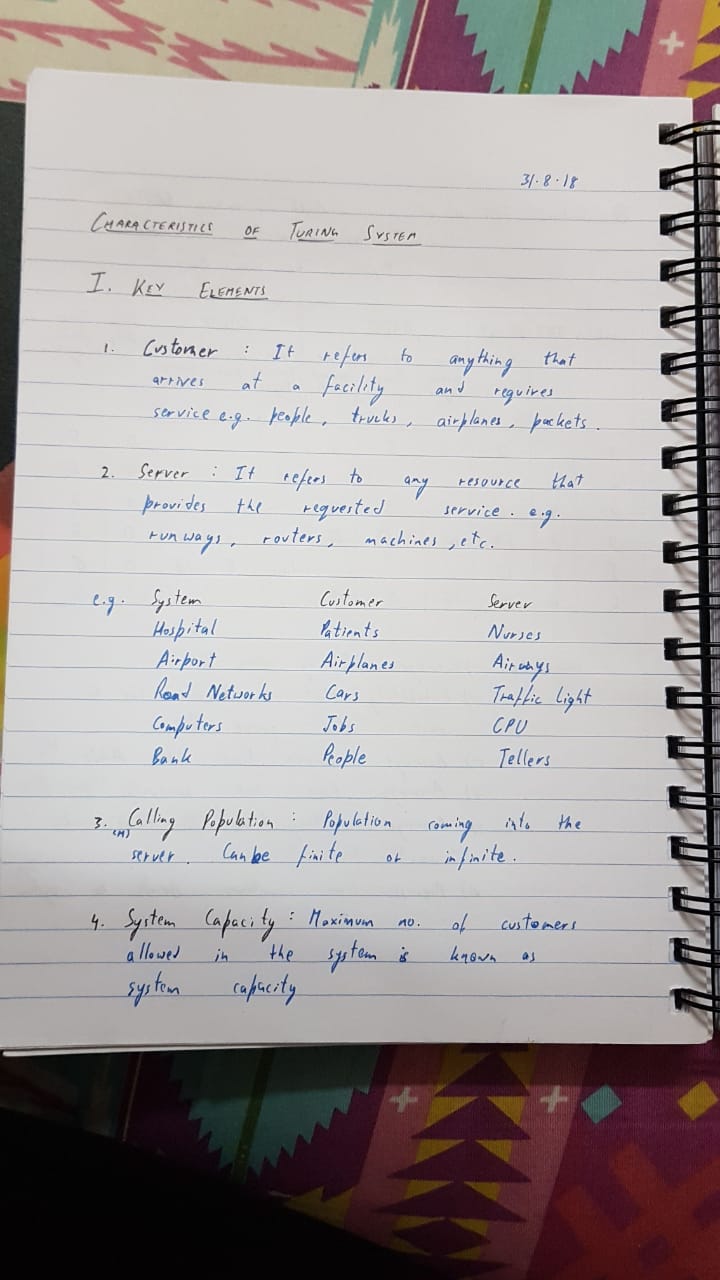 31.8.18
CHARACTERISTICS OF TURING SYSTEM
I. KEY ELEMENTS
1. Customer : It refers to anything that
arrives at a facility and requires
service e.g. people, trucks, airplanes, packets.
2. Server : It refers to any resource that
provides the requested service. e.g.
runways, routers, machines, etc.
e.g. System Customer Server
Hospital Patients Nurses
Airport Airplanes Airways
Road Networks Cars Traffic Light
Computers Jobs CPU
Bank People Tellers
3. Calling Population : Population coming into the
(M) server. Can be finite or infinite.
4. System Capacity : Maximum no. of customers
allowed in the system is known as
system capacity